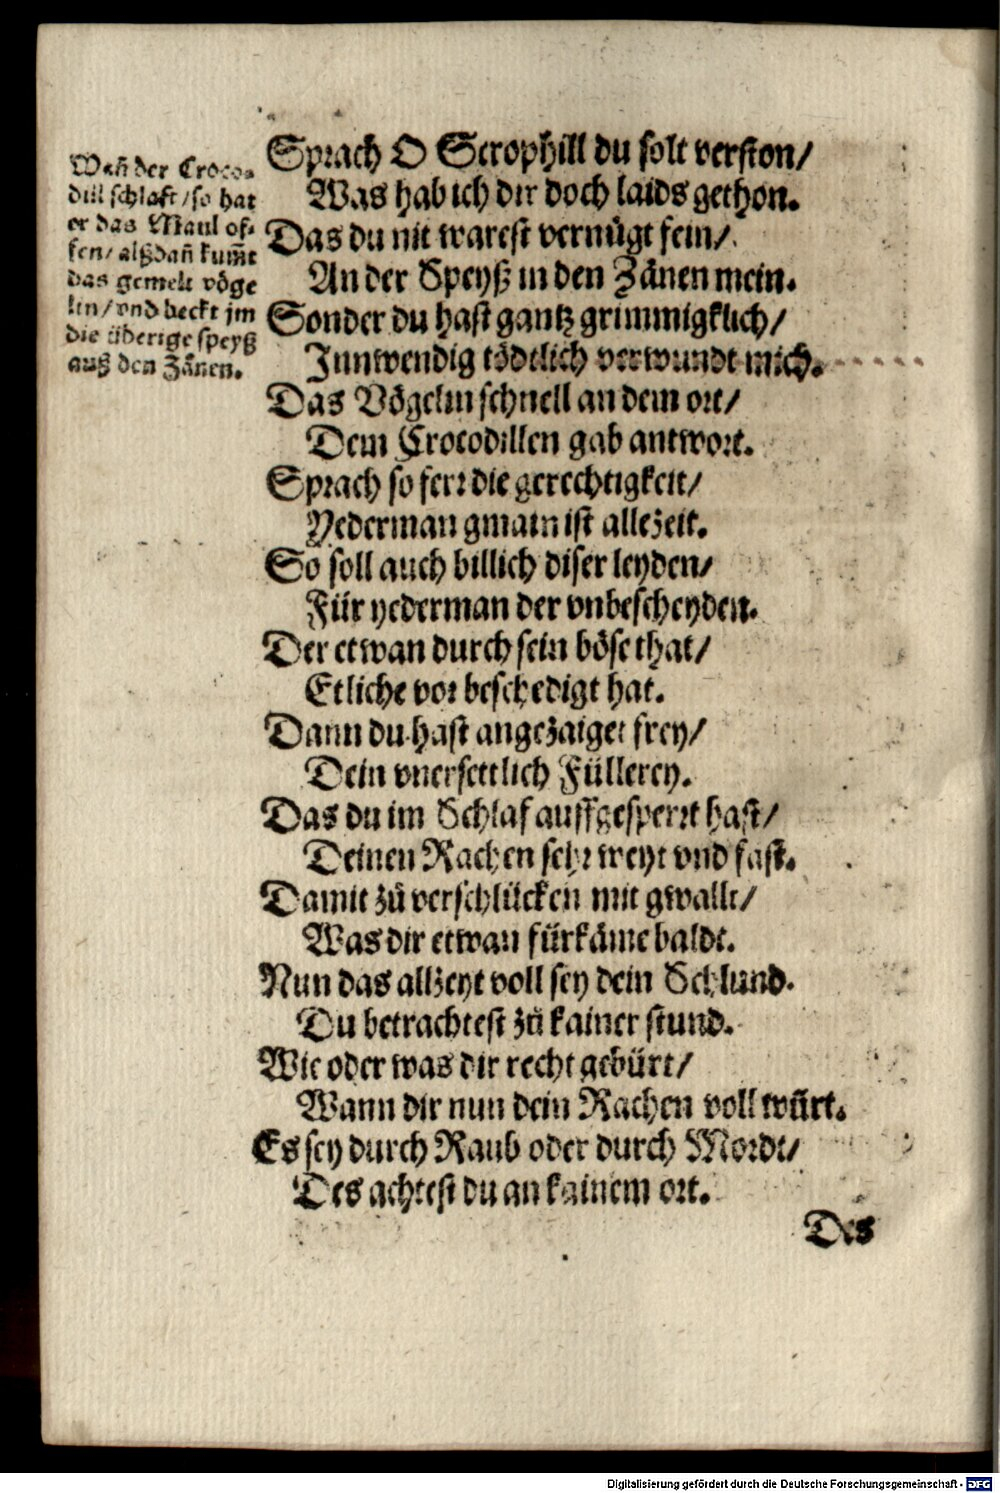 Wañ der Croco-
dill schlaft/so hat
er das Maul of-
fen/alßdañ kum̃t
das gemelt vöge
lin/vnd beckt jm
die überige speyß
auß den Zänen.
Sprach O Scrophill du solt verston/
Was hab ich dir doch laids gethon.
Das du nit warest vernügt sein/
An der Speyß in den Zänen mein.
Sonder du hast gantz grimmigklich/
Innwendig tödtlich verwundt mich.
Das Vögelin schnell an dem ort/
Dem Crocodillen gab antwort.
Sprach so ferr die gerechtigkeit/
Yederman gmain ist allezeit.
So soll auch billich diser leyden/
Für yederman der vnbescheyden.
Der etwan durch sein böse that/
Etliche vor beschedigt hat.
Dann du hast angezaiget frey/
Dein vnersettlich Füllerey.
Das du im Schlaf auffgesperrt hast/
Deinen Rachen sehr weyt vnd fast.
Damit zů verschlücken mit gwallt/
Was dir etwan fürkäme baldt.
Nun das allzeyt voll sey dein Schlund.
Du betrachtest zů kainer stund.
Wie oder was dir recht gebürt/
Wann dir nun dein Rachen voll würt.
Es sey durch Raub oder durch Mordt/
Des achtest du an kainem ort.
Des
Digitalisierung gefördert durch die Deutsche Forschungsgemeinschaft - DFG